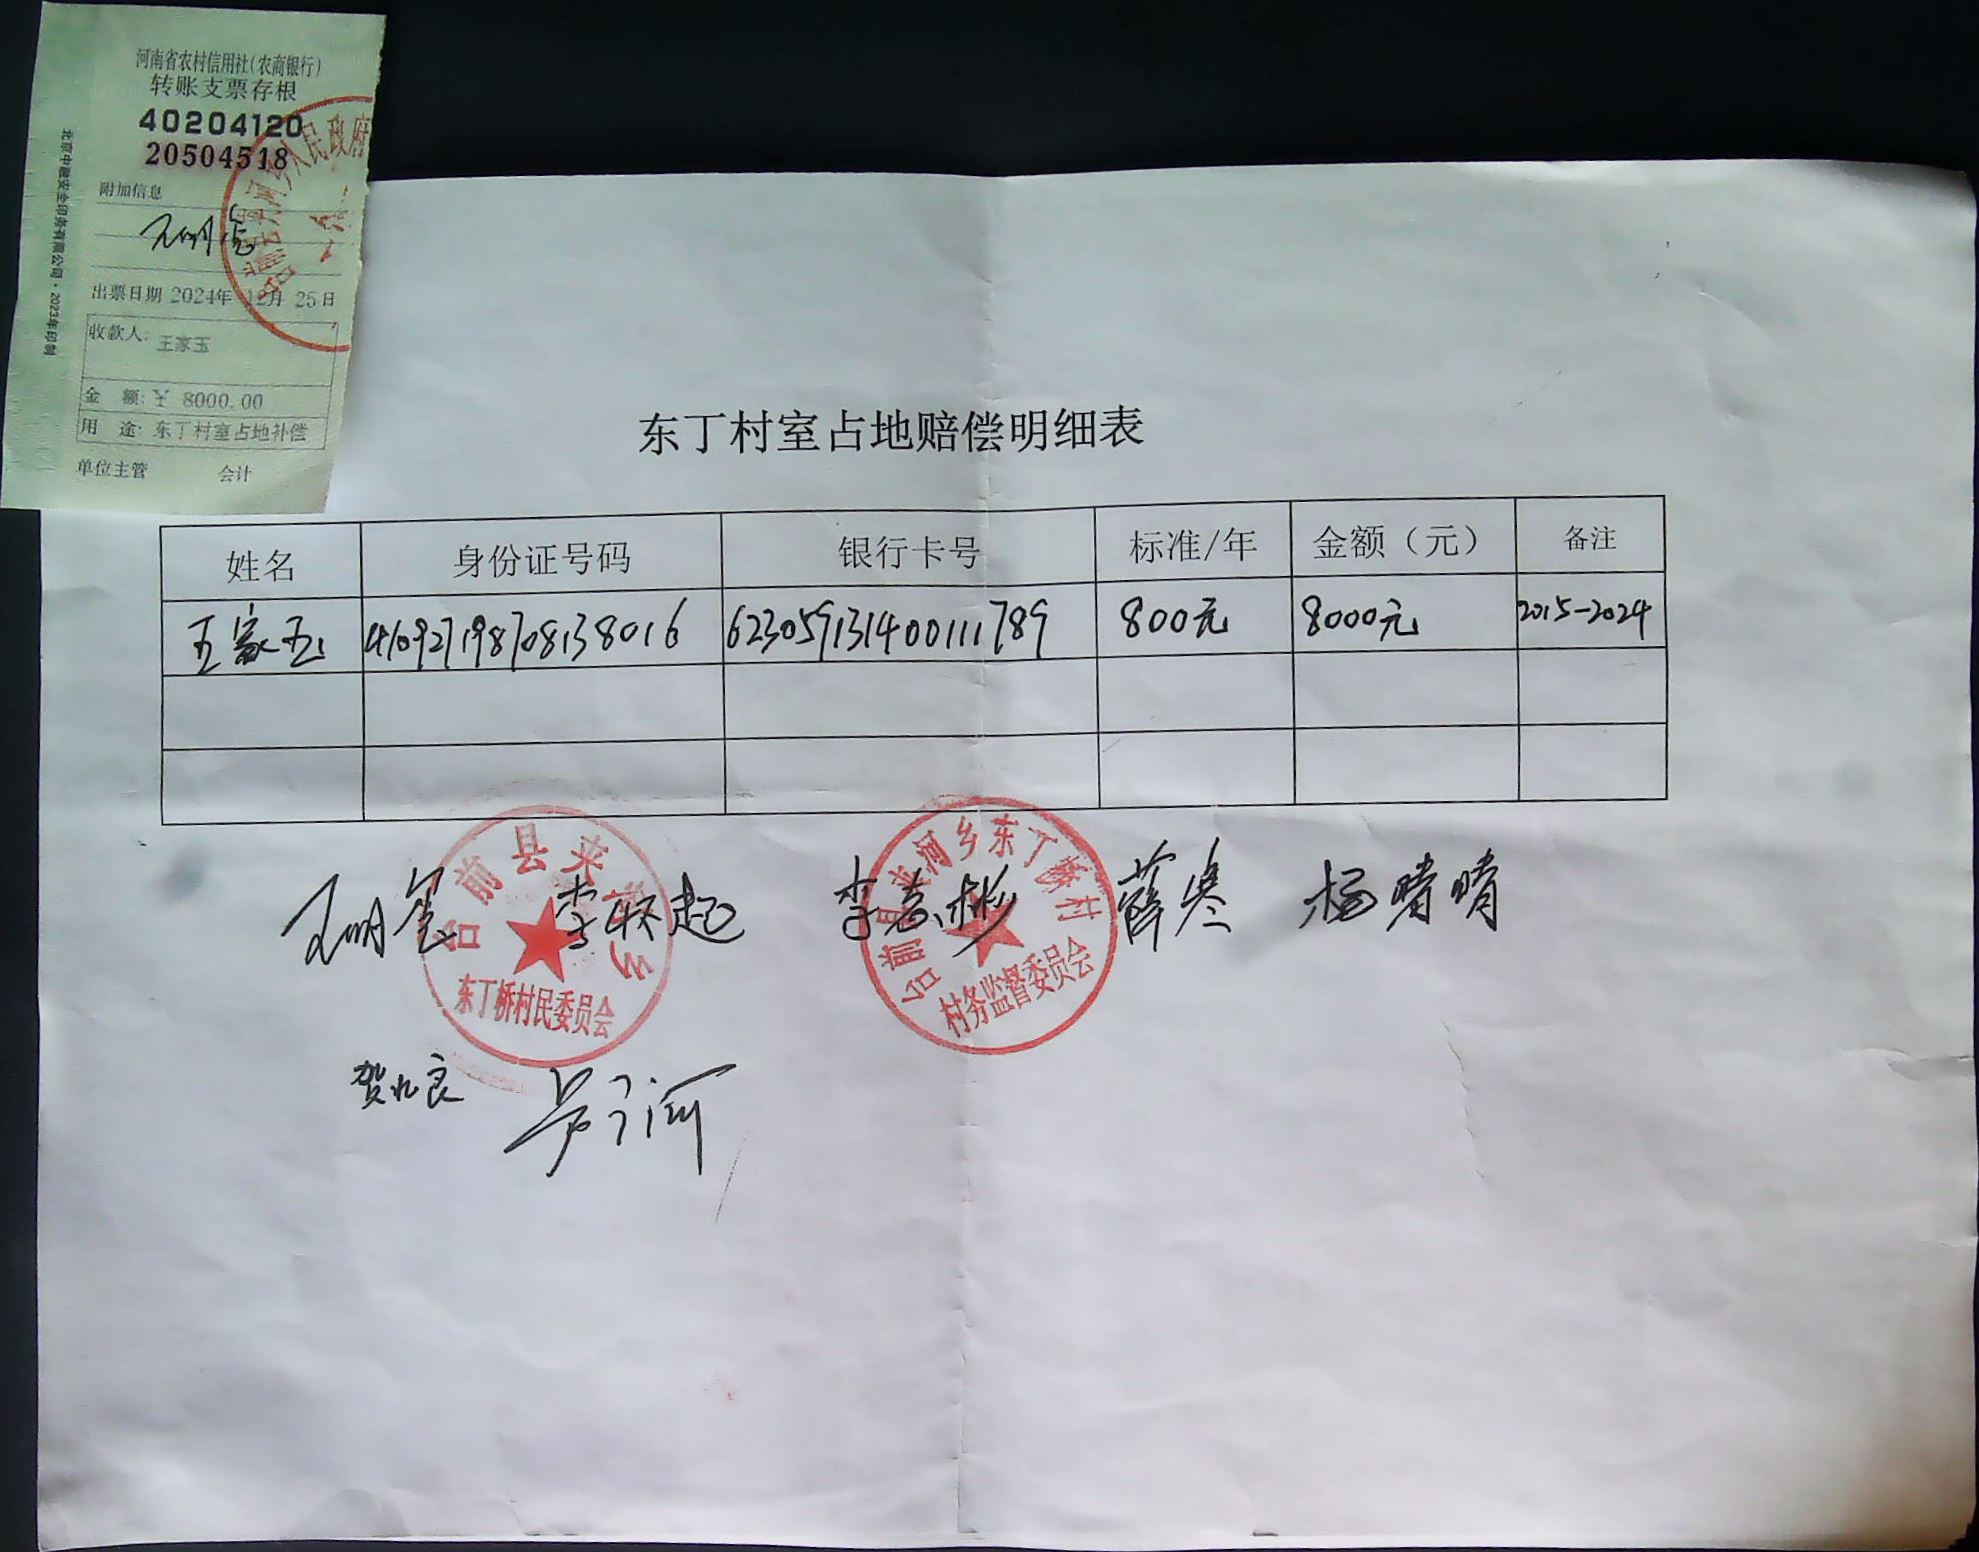 河南省农村信用社（农商银行）
转账支票存根
40204120
20504518
附加信息
出票日期 2024年 12月 25日
收款人： 王家玉
金 额：￥ 8000.00
用 途： 东丁村室占地补偿
单位主管 会计
北京中融安全印务有限公司·2023年印制
东丁村室占地赔偿明细表
姓名 身份证号码 银行卡号 标准/年 金额（元） 备注
王家玉 410927198708138016 623059131400111789 800元 8000元 2015-2024
台前县夹河乡
东丁桥村民委员会
台前县夹河乡东丁桥村
村务监督委员会
李志彬 薛寒 杨晴晴